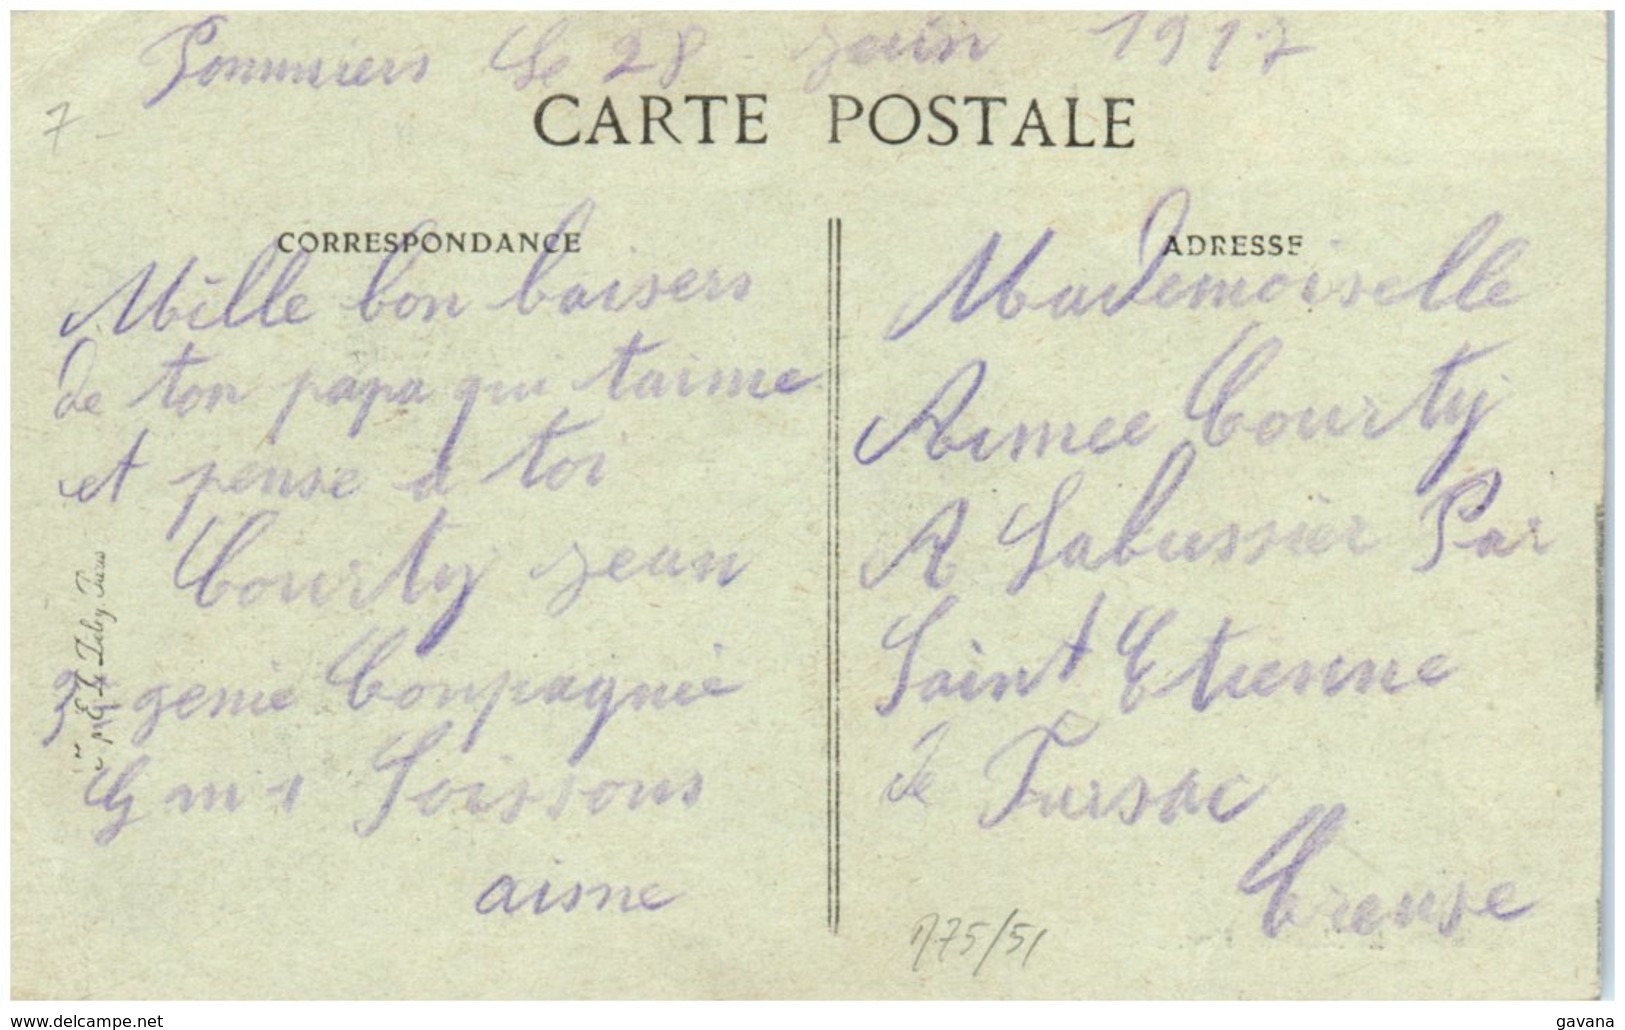 Pommiers le 28 juin 1917
7
CARTE POSTALE
CORRESPONDANCE
Mille bon baisers
de ton papa qui taime
et pense a toi
Courty jean
genie Compagnie
Soissons
aisne
ADRESSE
Mademoiselle
Aimee Courty
A Labussier Par
Saint Etienne
de Fursac
Creuse
775/51
www.delcampe.net
gavana